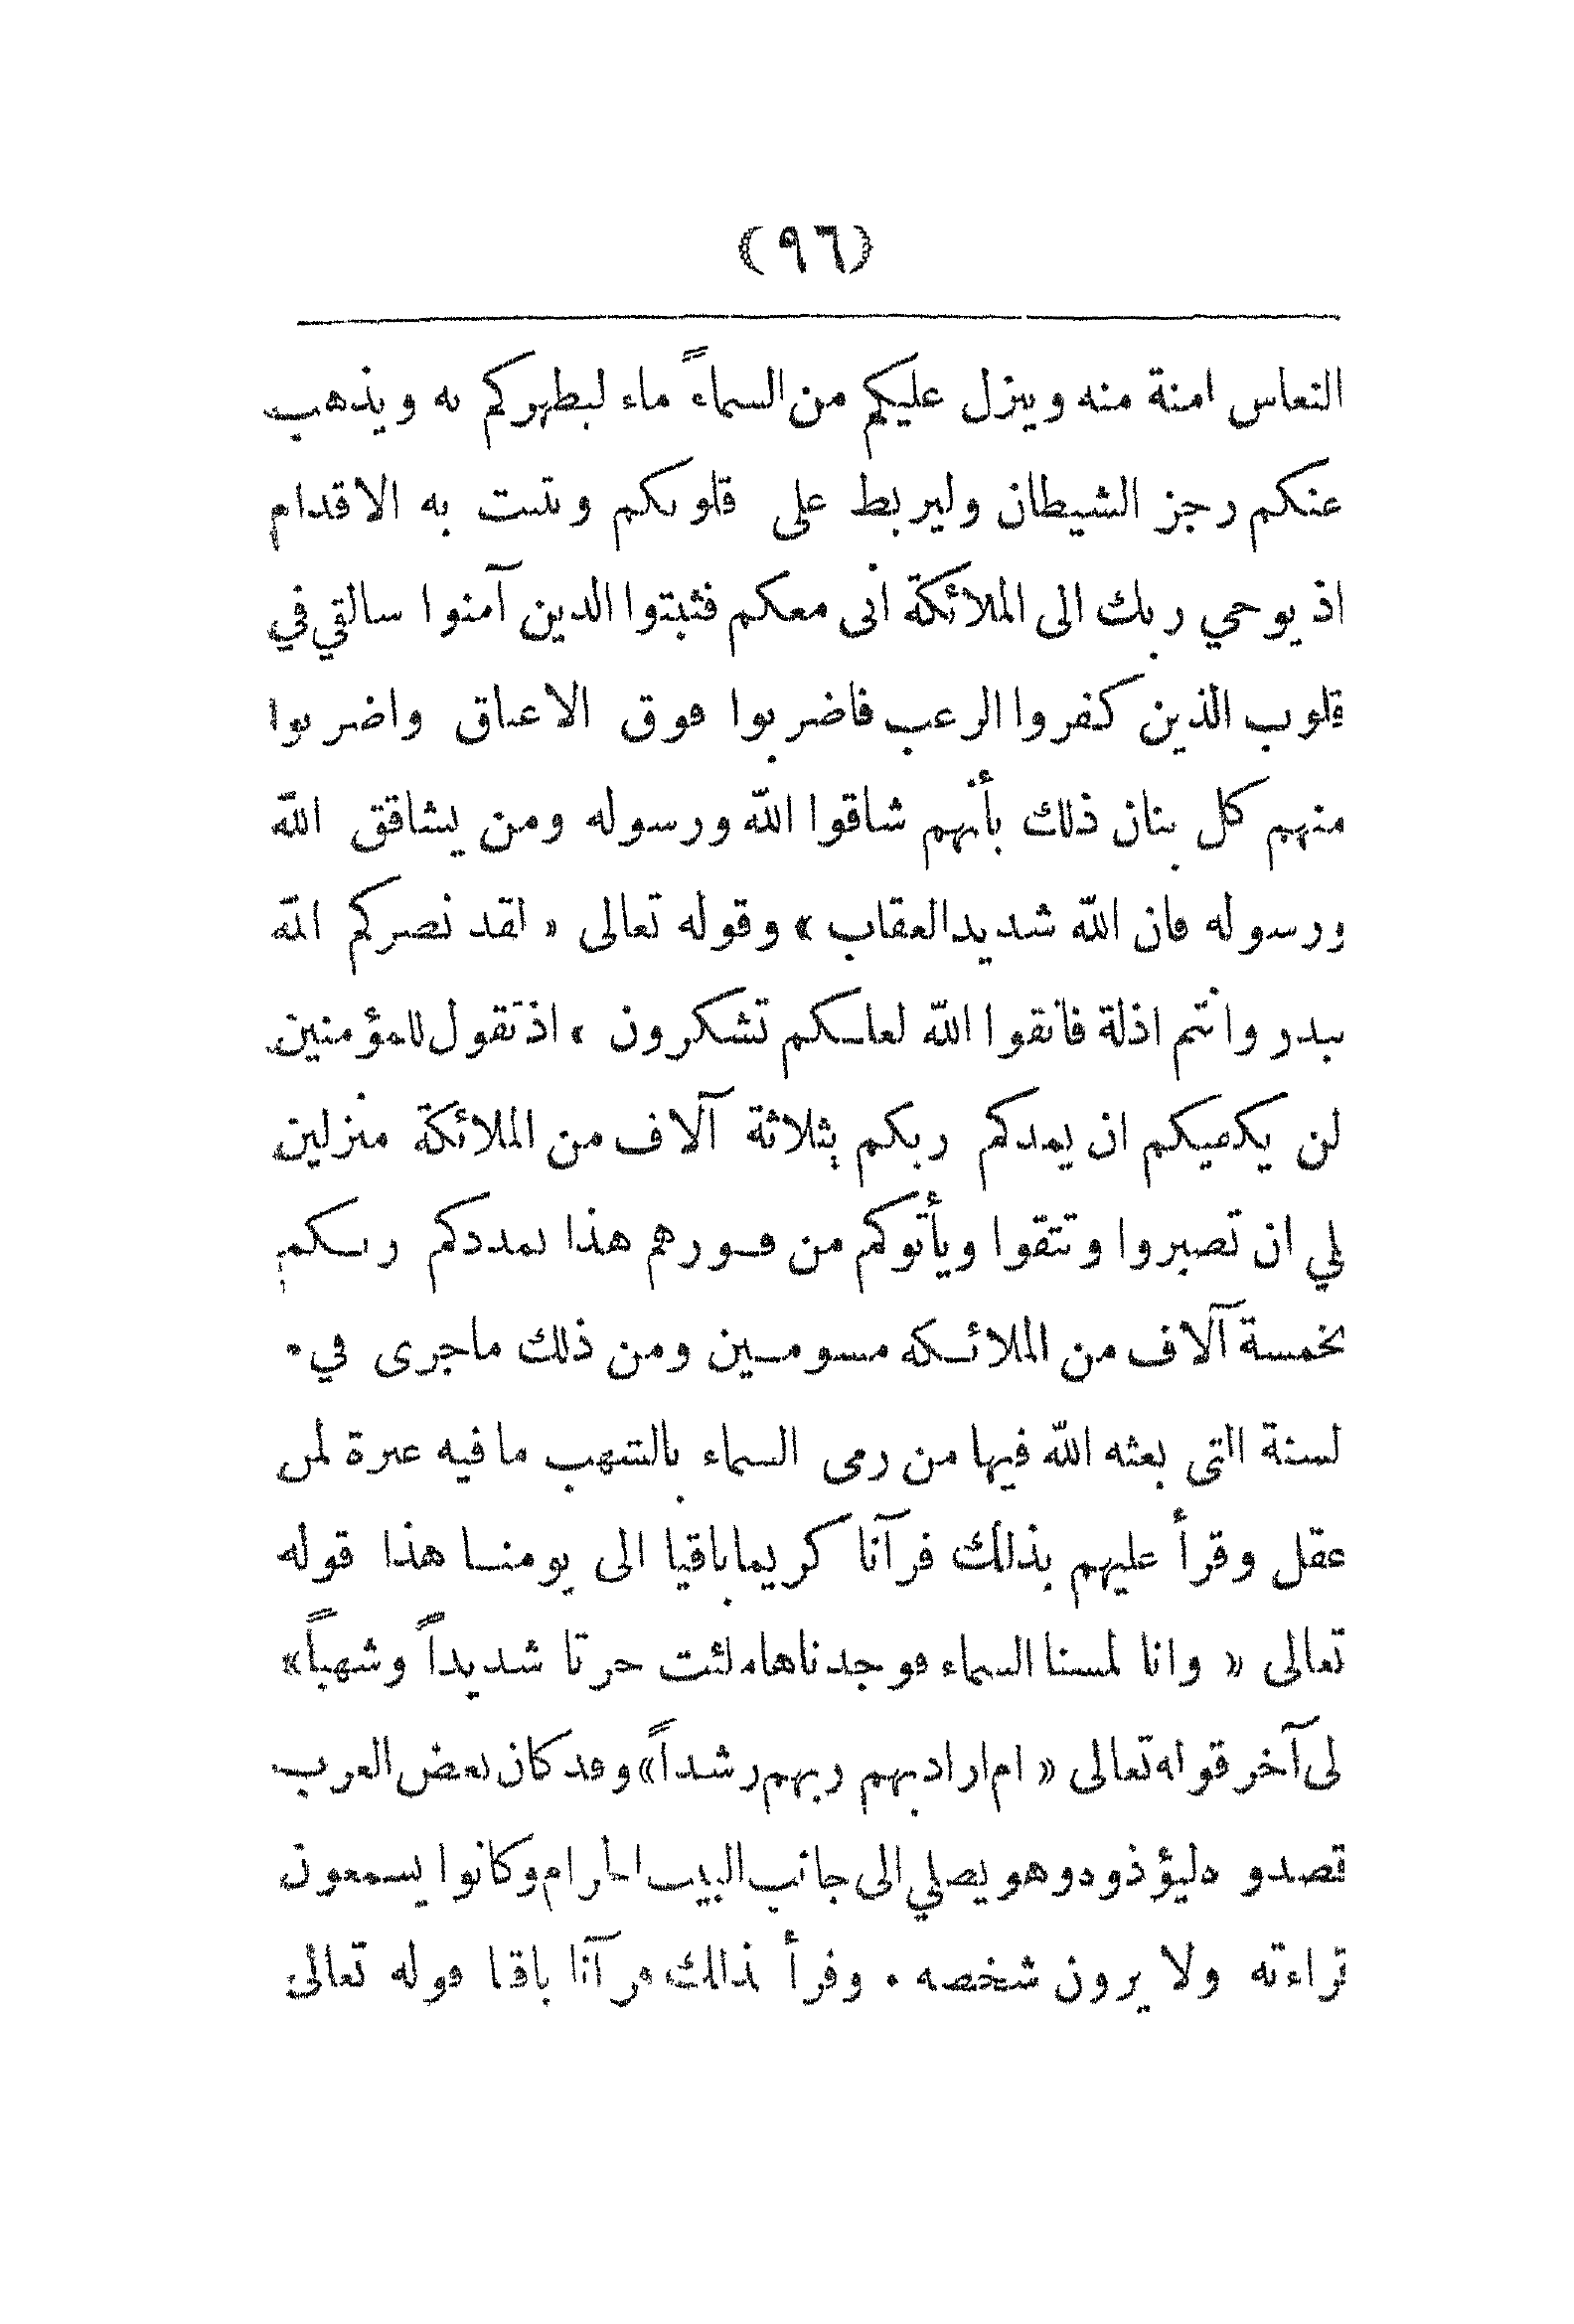 (٩٦)
النعاس امنة منه وينزل عليكم من السماءً ماء ليطهركم به ويذهب
عنكم رجز الشيطان وليربط على قلوبكم ويثبت به الاقدام
اذ يوحي ربك الى الملائكة أنى معكم فثبتوا الذين آمنوا سالقي في
قلوب الذين كفروا الرعب فاضربوا فوق الاعناق واضربوا
منهم كل بنان ذلك بأنهم شاقوا الله ورسوله ومن يشاقق الله
ورسوله فان الله شديد العقاب » وقوله تعالى « لقد نصركم الله
ببدر وانتم اذلة فاتقوا الله لعلكم تشكرون ، اذ تقول للمؤمنين
لن يكفيكم ان يمدكم ربكم بثلاثة آلاف من الملائكة منزلين
لي ان تصبروا وتتقوا ويأتوكم من فورهم هذا يمددكم ربكم
بخمسة آلاف من الملائكه مسومين ومن ذلك ماجرى في
لسنة التى بعثه الله فيها من رمى السماء بالشهب مافيه عبرة لمن
عقل وقرأ عليهم بذلك قرآنا كريما باقيا الى يومنا هذا قوله
تعالى « وانا لمسنا السماء فوجدناها ملئت حرتا شديداً وشهباً»
لى آخر قوله تعالى « ام اراد بهم ربهم رشداً» وقد كان بعض العرب
قصدو ليؤذوه وهو يصلي الى جانب البيت الحرام وكانوا يسمعون
قراءته ولا يرون شخصه . وقرأ بذالك قرآنا باقيا قوله تعالى